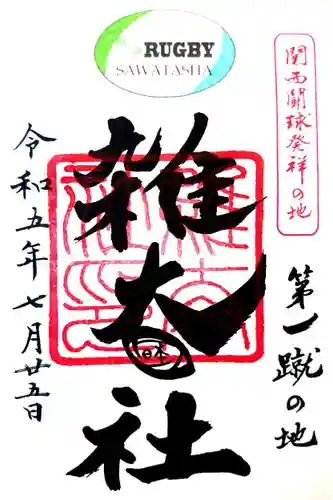 RUGBY
SAWATASHA
関西闘球発祥の地
第一蹴の地
雑太社
日本
令和五年七月廿五日